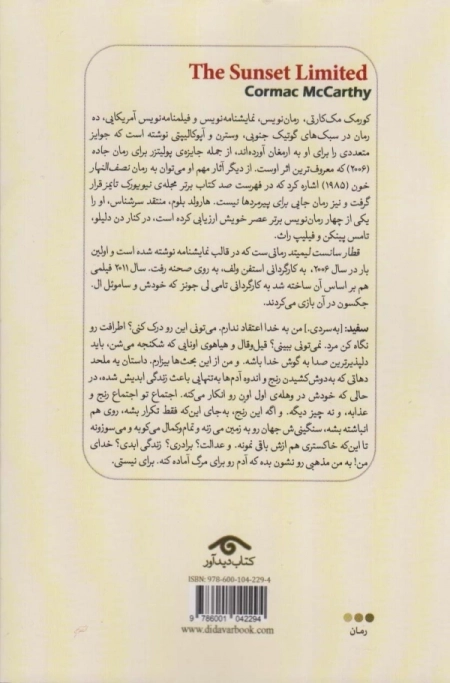 The Sunset Limited
Cormac McCarthy
کورمک مک‌کارتی، رمان‌نویس، نمایشنامه‌نویس و فیلمنامه‌نویس آمریکایی، ده
رمان در سبک‌های گوتیک جنوبی، وسترن و آپوکالیپتی نوشته است که جوایز
متعددی را برای او به ارمغان آورده‌اند، از جمله جایزه‌ی پولیتزر برای رمان جاده
(۲۰۰۶) که معروف‌ترین اثر اوست. از دیگر آثار مهم او می‌توان به رمان نصف‌النهار
خون (۱۹۸۵) اشاره کرد که در فهرست صد کتاب برتر مجله‌ی نیویورک تایمز قرار
گرفت و نیز رمان جایی برای پیرمردها نیست. هارولد بلوم، منتقد سرشناس، او را
یکی از چهار رمان‌نویس برتر عصر خویش ارزیابی کرده است، در کنار دن دلیلو،
تامس پینکن و فیلیپ راث.
قطار سانست لیمیتد رمانی‌ست که در قالب نمایشنامه نوشته شده است و اولین
بار در سال ۲۰۰۶، به کارگردانی استفن ولف، به روی صحنه رفت. سال ۲۰۱۱ فیلمی
هم بر اساس آن ساخته شد به کارگردانی تامی لی جونز که خودش و ساموئل ال.
جکسون در آن بازی می‌کردند.
سفید: [به‌سردی.] من به خدا اعتقاد ندارم. می‌تونی این رو درک کنی؟ اطرافت رو
نگاه کن مرد. نمی‌تونی ببینی؟ قیل‌وقال و هیاهوی اونایی که شکنجه می‌شن، باید
دلپذیرترین صدا به گوش خدا باشه. و من از این بحث‌ها بیزارم. داستان یه ملحد
دهاتی که به‌دوش‌کشیدن رنج و اندوه آدم‌ها به‌تنهایی باعث زندگی ابدیش شده، در
حالی که خودش در وهله‌ی اول اون رو انکار می‌کنه. اجتماع تو اجتماع رنج و
عذابه، و نه چیز دیگه. و اگه این رنج، به‌جای این‌که فقط تکرار بشه، روی هم
انباشته بشه، سنگینی‌ش جهان رو به زمین می‌زنه و تمام‌وکمال می‌کوبه و می‌سوزونه
تا این‌که خاکستری هم ازش باقی نمونه. و عدالت؟ برادری؟ زندگی ابدی؟ خدای
من! به من مذهبی رو نشون بده که آدم رو برای مرگ آماده کنه. برای نیستی.
کتاب دیدآور
ISBN: 978-600-104-229-4
9 786001 042294
www.didavarbook.com
رمان